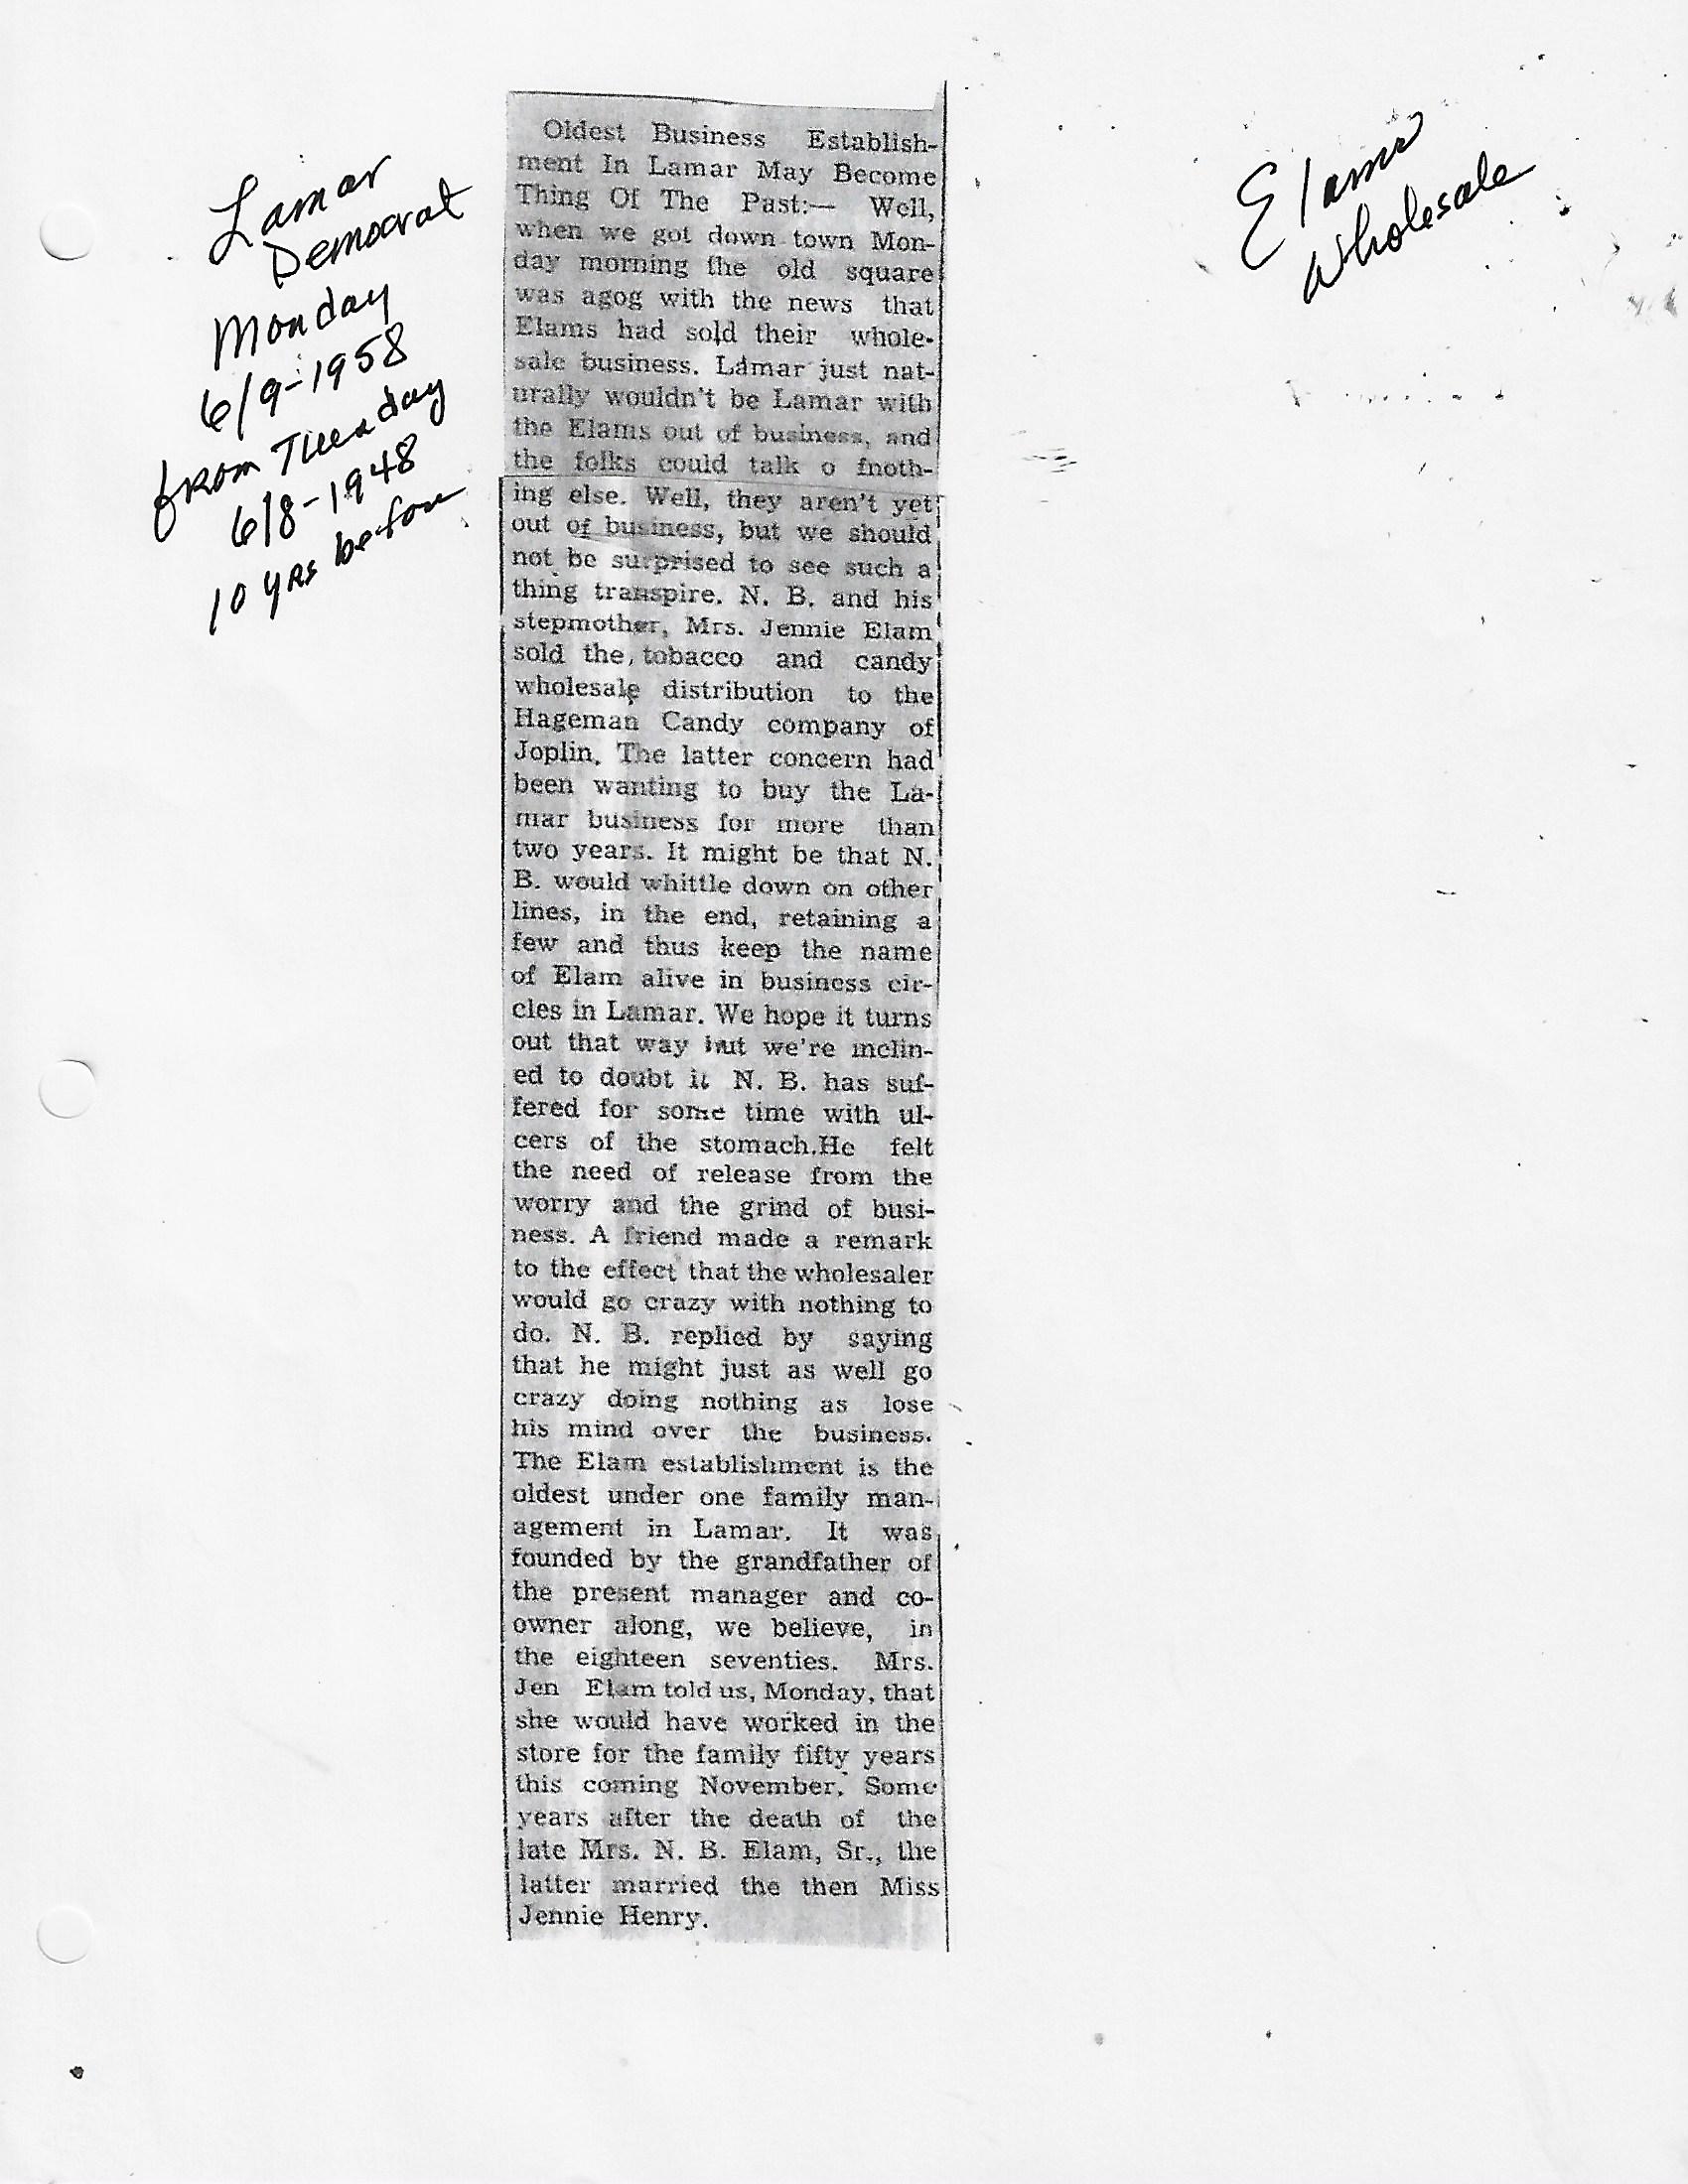 Lamar
Democrat
Monday
6/9-1958
from Tuesday
6/8-1948
10 yrs before
Elams
Wholesale
Oldest Business Establish-
ment In Lamar May Become
Thing Of The Past:— Well,
when we got down town Mon-
day morning the old square
was agog with the news that
Elams had sold their whole-
sale business. Lamar just nat-
urally wouldn't be Lamar with
the Elams out of business, and
the folks could talk o fnoth-
ing else. Well, they aren't yet
out of business, but we should
not be surprised to see such a
thing transpire. N. B. and his
stepmother, Mrs. Jennie Elam
sold the tobacco and candy
wholesale distribution to the
Hageman Candy company of
Joplin. The latter concern had
been wanting to buy the La-
mar business for more than
two years. It might be that N.
B. would whittle down on other
lines, in the end, retaining a
few and thus keep the name
of Elam alive in business cir-
cles in Lamar. We hope it turns
out that way but we're inclin-
ed to doubt it N. B. has suf-
fered for some time with ul-
cers of the stomach.He felt
the need of release from the
worry and the grind of busi-
ness. A friend made a remark
to the effect that the wholesaler
would go crazy with nothing to
do. N. B. replied by saying
that he might just as well go
crazy doing nothing as lose
his mind over the business.
The Elam establishment is the
oldest under one family man-
agement in Lamar. It was
founded by the grandfather of
the present manager and co-
owner along, we believe, in
the eighteen seventies. Mrs.
Jen Elam told us, Monday, that
she would have worked in the
store for the family fifty years
this coming November. Some
years after the death of the
late Mrs. N. B. Elam, Sr., the
latter married the then Miss
Jennie Henry.